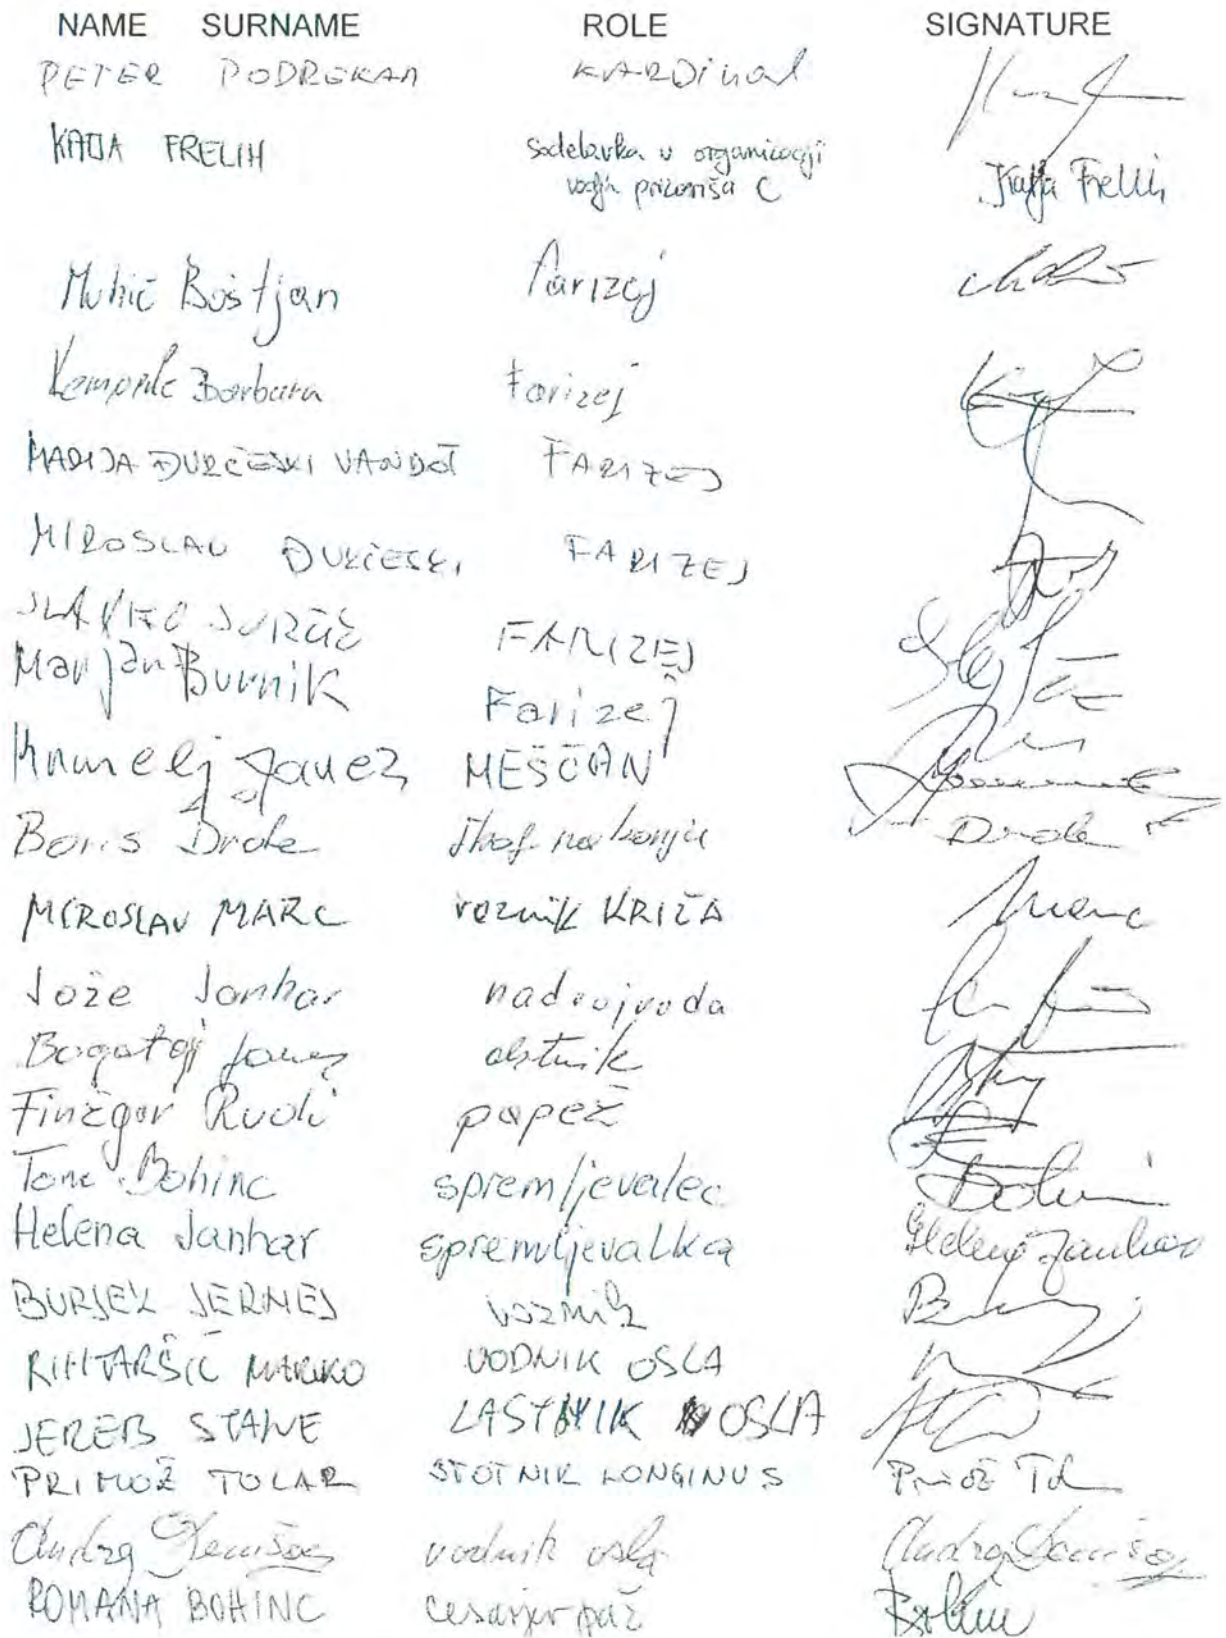 NAME SURNAME ROLE SIGNATURE
PETER PODREKAR KARDinal
KATJA FRELIH sodelavka v organizaciji Katja Frelih
vodja prizorišča C
Muhič Boštjan Farizej
Barbara Farizej
MARIJA ĐURČESKI VANDOT FARIZEJ
MIROSLAV ĐURČESKI FARIZEJ
SLAVKO FARIZEJ
Marjan Burnik Farizej
Janez MEŠČAN
Boris Drole škof na konju Drole
MIROSLAV MARC voznik KRIŽA Marc
Jože Janhar nadvojvoda
Bogataj Janez obrtnik
Finžgar Rudi papež
Tone Bohinc spremljevalec
Helena Janhar spremljevalka Helena Janhar
BURJEK JERNEJ voznik
RIHTARŠIČ MARKO VODNIK OSLA
JEREB STANE LASTNIK OSLA
PRIMOŽ TOLAR STOTNIK LONGINUS
Andrej vodnik osla Andrej
ROMANA BOHINC cesarjev paž Bohinc